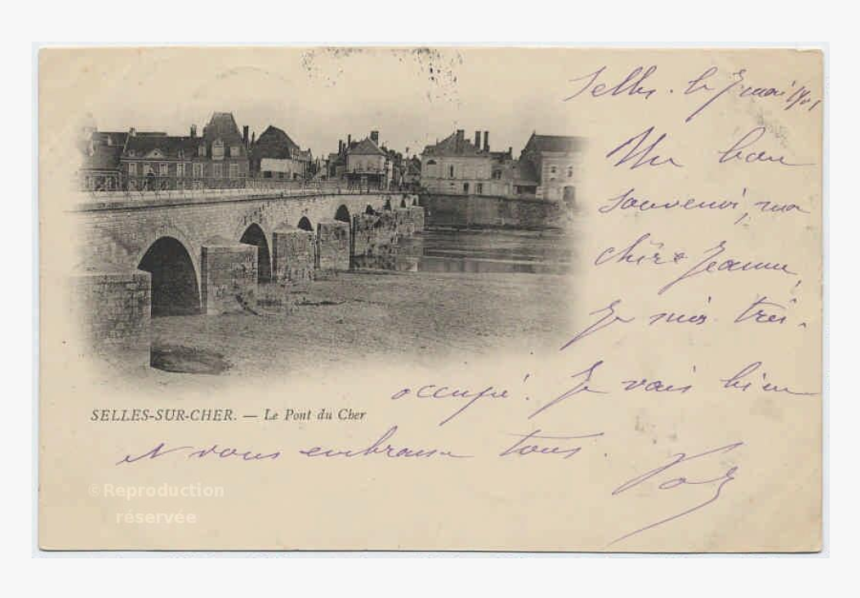 Selles. le 7 mai 1901
Un bon
souvenir, ma
chère Jeanne,
Je suis très-
occupé. Je vais bien
SELLES-SUR-CHER. — Le Pont du Cher
et vous embrasse tous.
©Reproduction
réservée